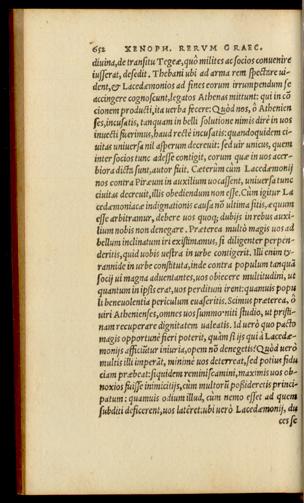 652 XENOPH. RERVM GRAEC.
diuina, de transitu Tegeæ, quò milites ac socios conuenire
iusserat, desedit. Thebani ubi ad arma rem spectare ui-
dent, & Lacedæmonios ad fines eorum irrumpendum se
accingere cognoscunt, legatos Athenas mittunt: qui in cõ
cionem producti, ita uerba fecere: Quòd nos, ô Athenien
ses, incusatis, tanquam in belli solutione nimis dirè in uos
inuecti fuerimus, haud rectè incusatis: quandoquidem ci-
uitas uniuersa nil asperum decreuit: sed uir unicus, quem
inter socios tunc adesse contigit, eorum quæ in uos acer-
biora dicta sunt, autor fuit. Cæterùm cùm Lacedæmonij
nos contra Piræum in auxilium uocassent, uniuersa tunc
ciuitas decreuit, illis obediendum non esse. Cùm igitur La
cedæmoniacæ indignationis causa nõ ultima sitis, æquum
esse arbitramur, debere uos quoq; dubijs in rebus auxi-
lium nobis non denegare. Præterea multò magis uos ad
bellum inclinatum iri existimamus, si diligenter perpen-
deritis, quid uobis uestra in urbe contigerit. Illi enim ty-
rannide in urbe constituta, inde contra populum tanquã
socij ui magna aduentantes, uos obiecere multitudini, ut
quantum in ipsis erat, uos perditum irent: quamuis popu
li beneuolentia periculum euaseritis. Scimus præterea, ô
uiri Athenienses, omnes uos summo niti studio, ut pristi-
nam recuperare dignitatem ualeatis. Id uerò quo pacto
magis opportunè fieri poterit, quàm si ijs qui à Lacedæ-
monijs afficiũtur iniuria, opem nõ denegetis? Quòd uerò
multis illi imperãt, minimè uos deterreat, sed potius fidu
ciam præbeat: siquidem reminiscamini, maximis uos ob-
noxios fuisse inimicitijs, cùm multorũ possideretis princi-
patum: quamuis odium illud, cùm nemo esset ad quem
subditi deficerent, uos latêret: ubi uerò Lacedæmonij, du
ces se